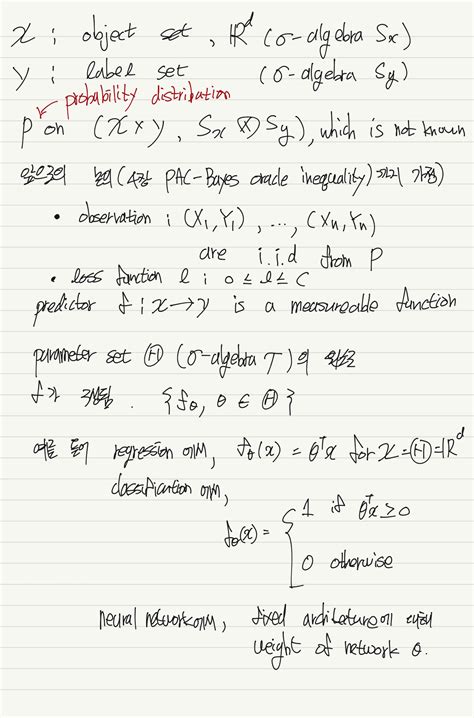 X : object set , ℝ^d (σ-algebra Sx)
Y : label set (σ-algebra Sy)
probability distribution
P on (X×Y, Sx ⊗ Sy), which is not known
앞으로의 논의(4장 PAC-Bayes oracle inequality)까지 가정)
• observation : (X1,Y1), ..., (Xn,Yn)
are i.i.d from P
• loss function l ; 0 ≤ l ≤ C
predictor f : X→Y is a measureable function
parameter set Θ (σ-algebra T)의 원소로
f가 구성됨. {fθ, θ ∈ Θ}
예를 들어 regression에서, fθ(x) = θᵀx for X=Θ=ℝ^d
classification에서,
fθ(x) = { 1 if θᵀx ≥ 0
0 otherwise
neural network에서, fixed architecture에 대해
weight of network θ.